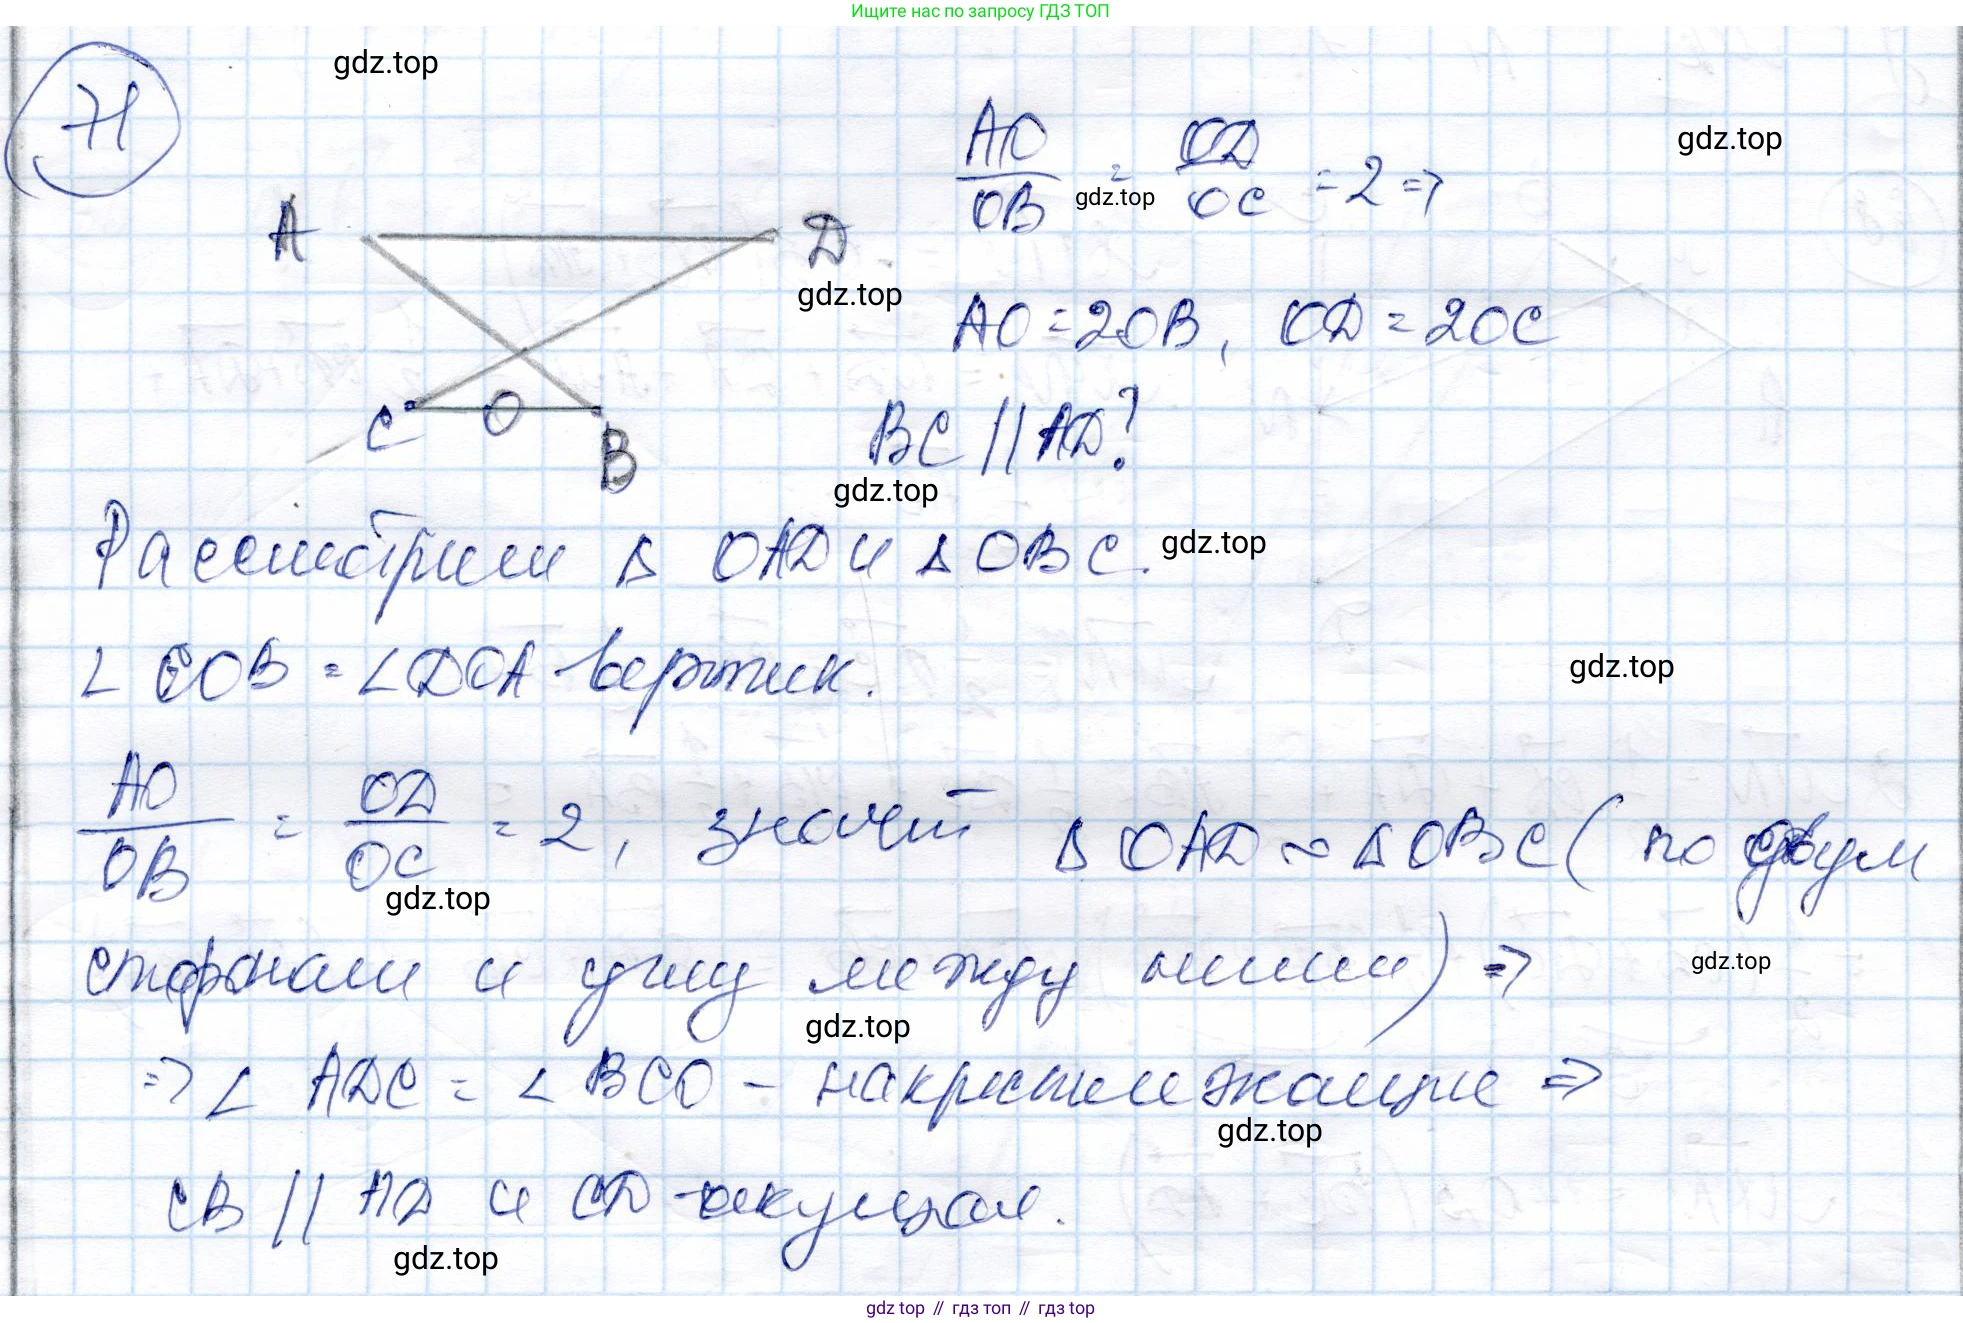 Ищите нас по запросу ГДЗ ТОП
gdz.top
71
AO/OB = OD/OC = 2 =>
gdz.top
gdz.top
A
D
gdz.top
AO = 2OB, OD = 2OC
C
O
B
BC || AD?
gdz.top
Рассмотрим Δ OAD и Δ OBC.
gdz.top
∠ COB = ∠DOA - вертик.
gdz.top
AO/OB = OD/OC = 2, значит Δ OAD ~ Δ OBC ( по двум
gdz.top
сторонам и углу между ними) =>
gdz.top
gdz.top
=> ∠ ADC = ∠ BCO - накрестлежащие =>
gdz.top
CB || AD и CD - секущая.
gdz.top
gdz top // гдз топ // гдз top